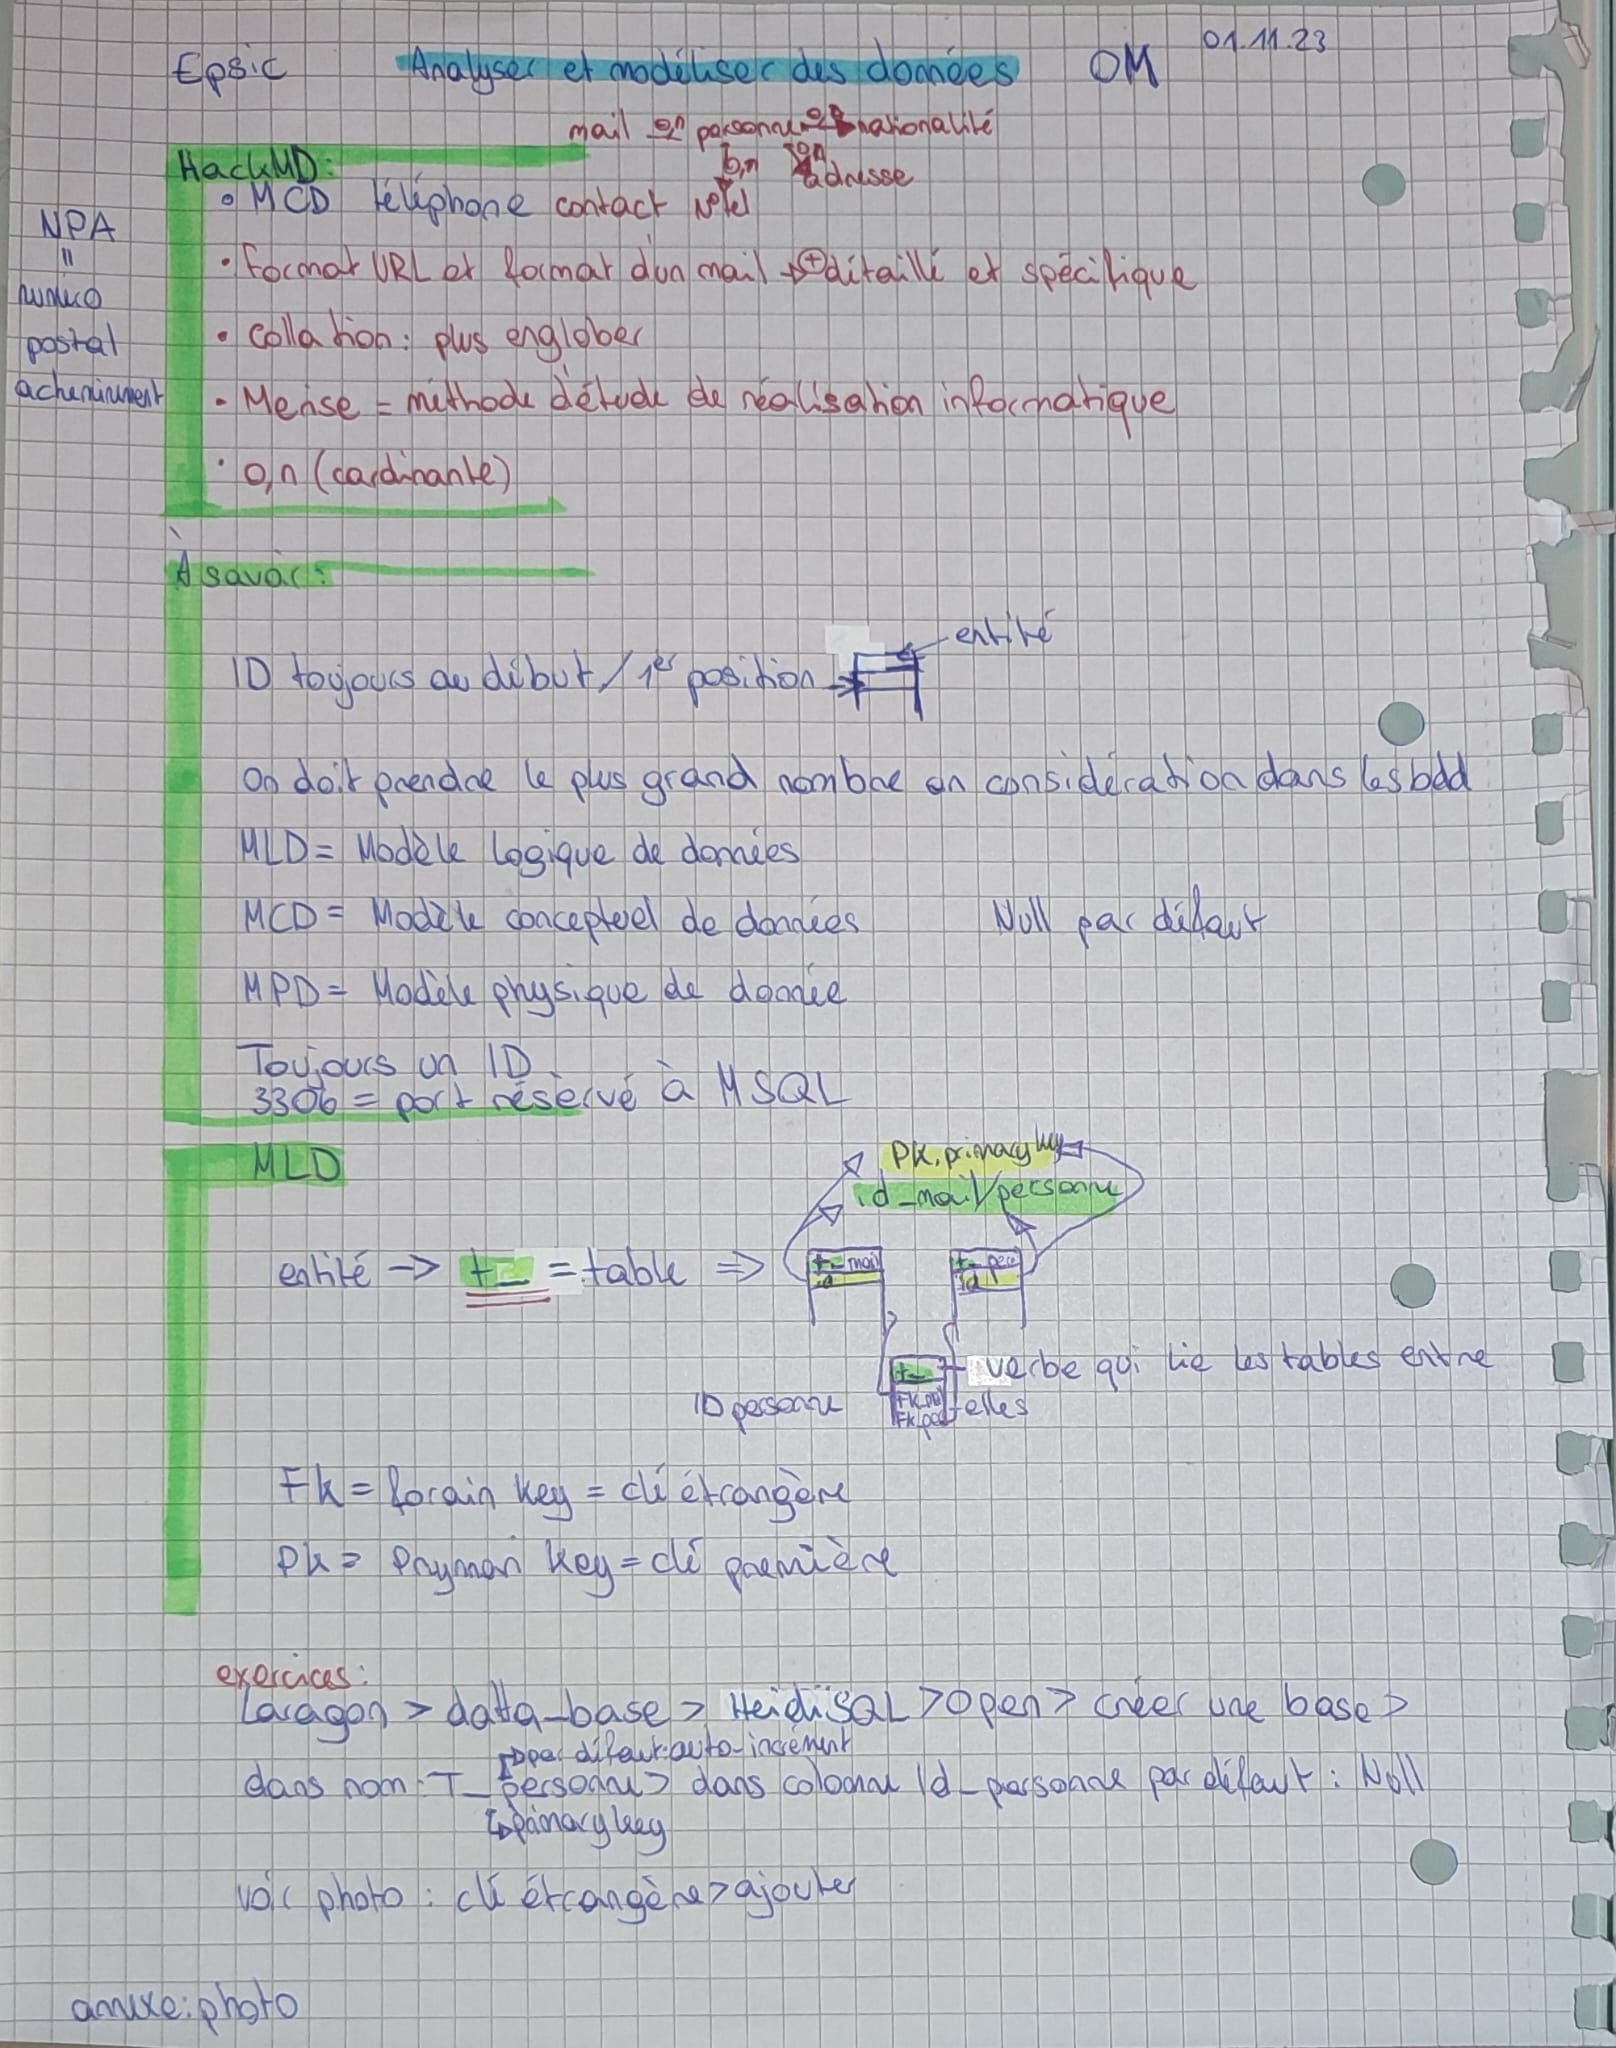 Epsic Analyser et modéliser des données OM 01.11.23
mail 0,n personne nationalité
0,n
adresse
HackMD:
• MCD téléphone contact N°tel
• format URL et format d'un mail → + détaillé et spécifique
• collation: plus englober
• Merise = méthode d'étude de réalisation informatique
• 0,n (cardinante)
NPA
"
numéro
postal
acheminement
À savoir:
entité
ID toujours au début / 1er position
On doit prendre le plus grand nombre en considération dans les bdd
MLD = Modèle logique de données
MCD = Modèle conceptuel de données Null par défaut
MPD = Modèle physique de donnée
Toujours un ID
3306 = port réservé à MSQL
MLD
PK. primary key
id_mail/personne
entité -> t_ = table => t_mail t_per
id id
t_ verbe qui lie les tables entre
ID personne elles
Fk = forain key = clé étrangère
Pk = Prymari key = clé première
exercices:
Laragon > datta_base > HeidiSQL > Open > créer une base >
par défaut: auto-incrément
dans nom: T_personne > dans colonne Id_personne par défaut: Null
primary key
voir photo: clé étrangère > ajouter
annexe: photo